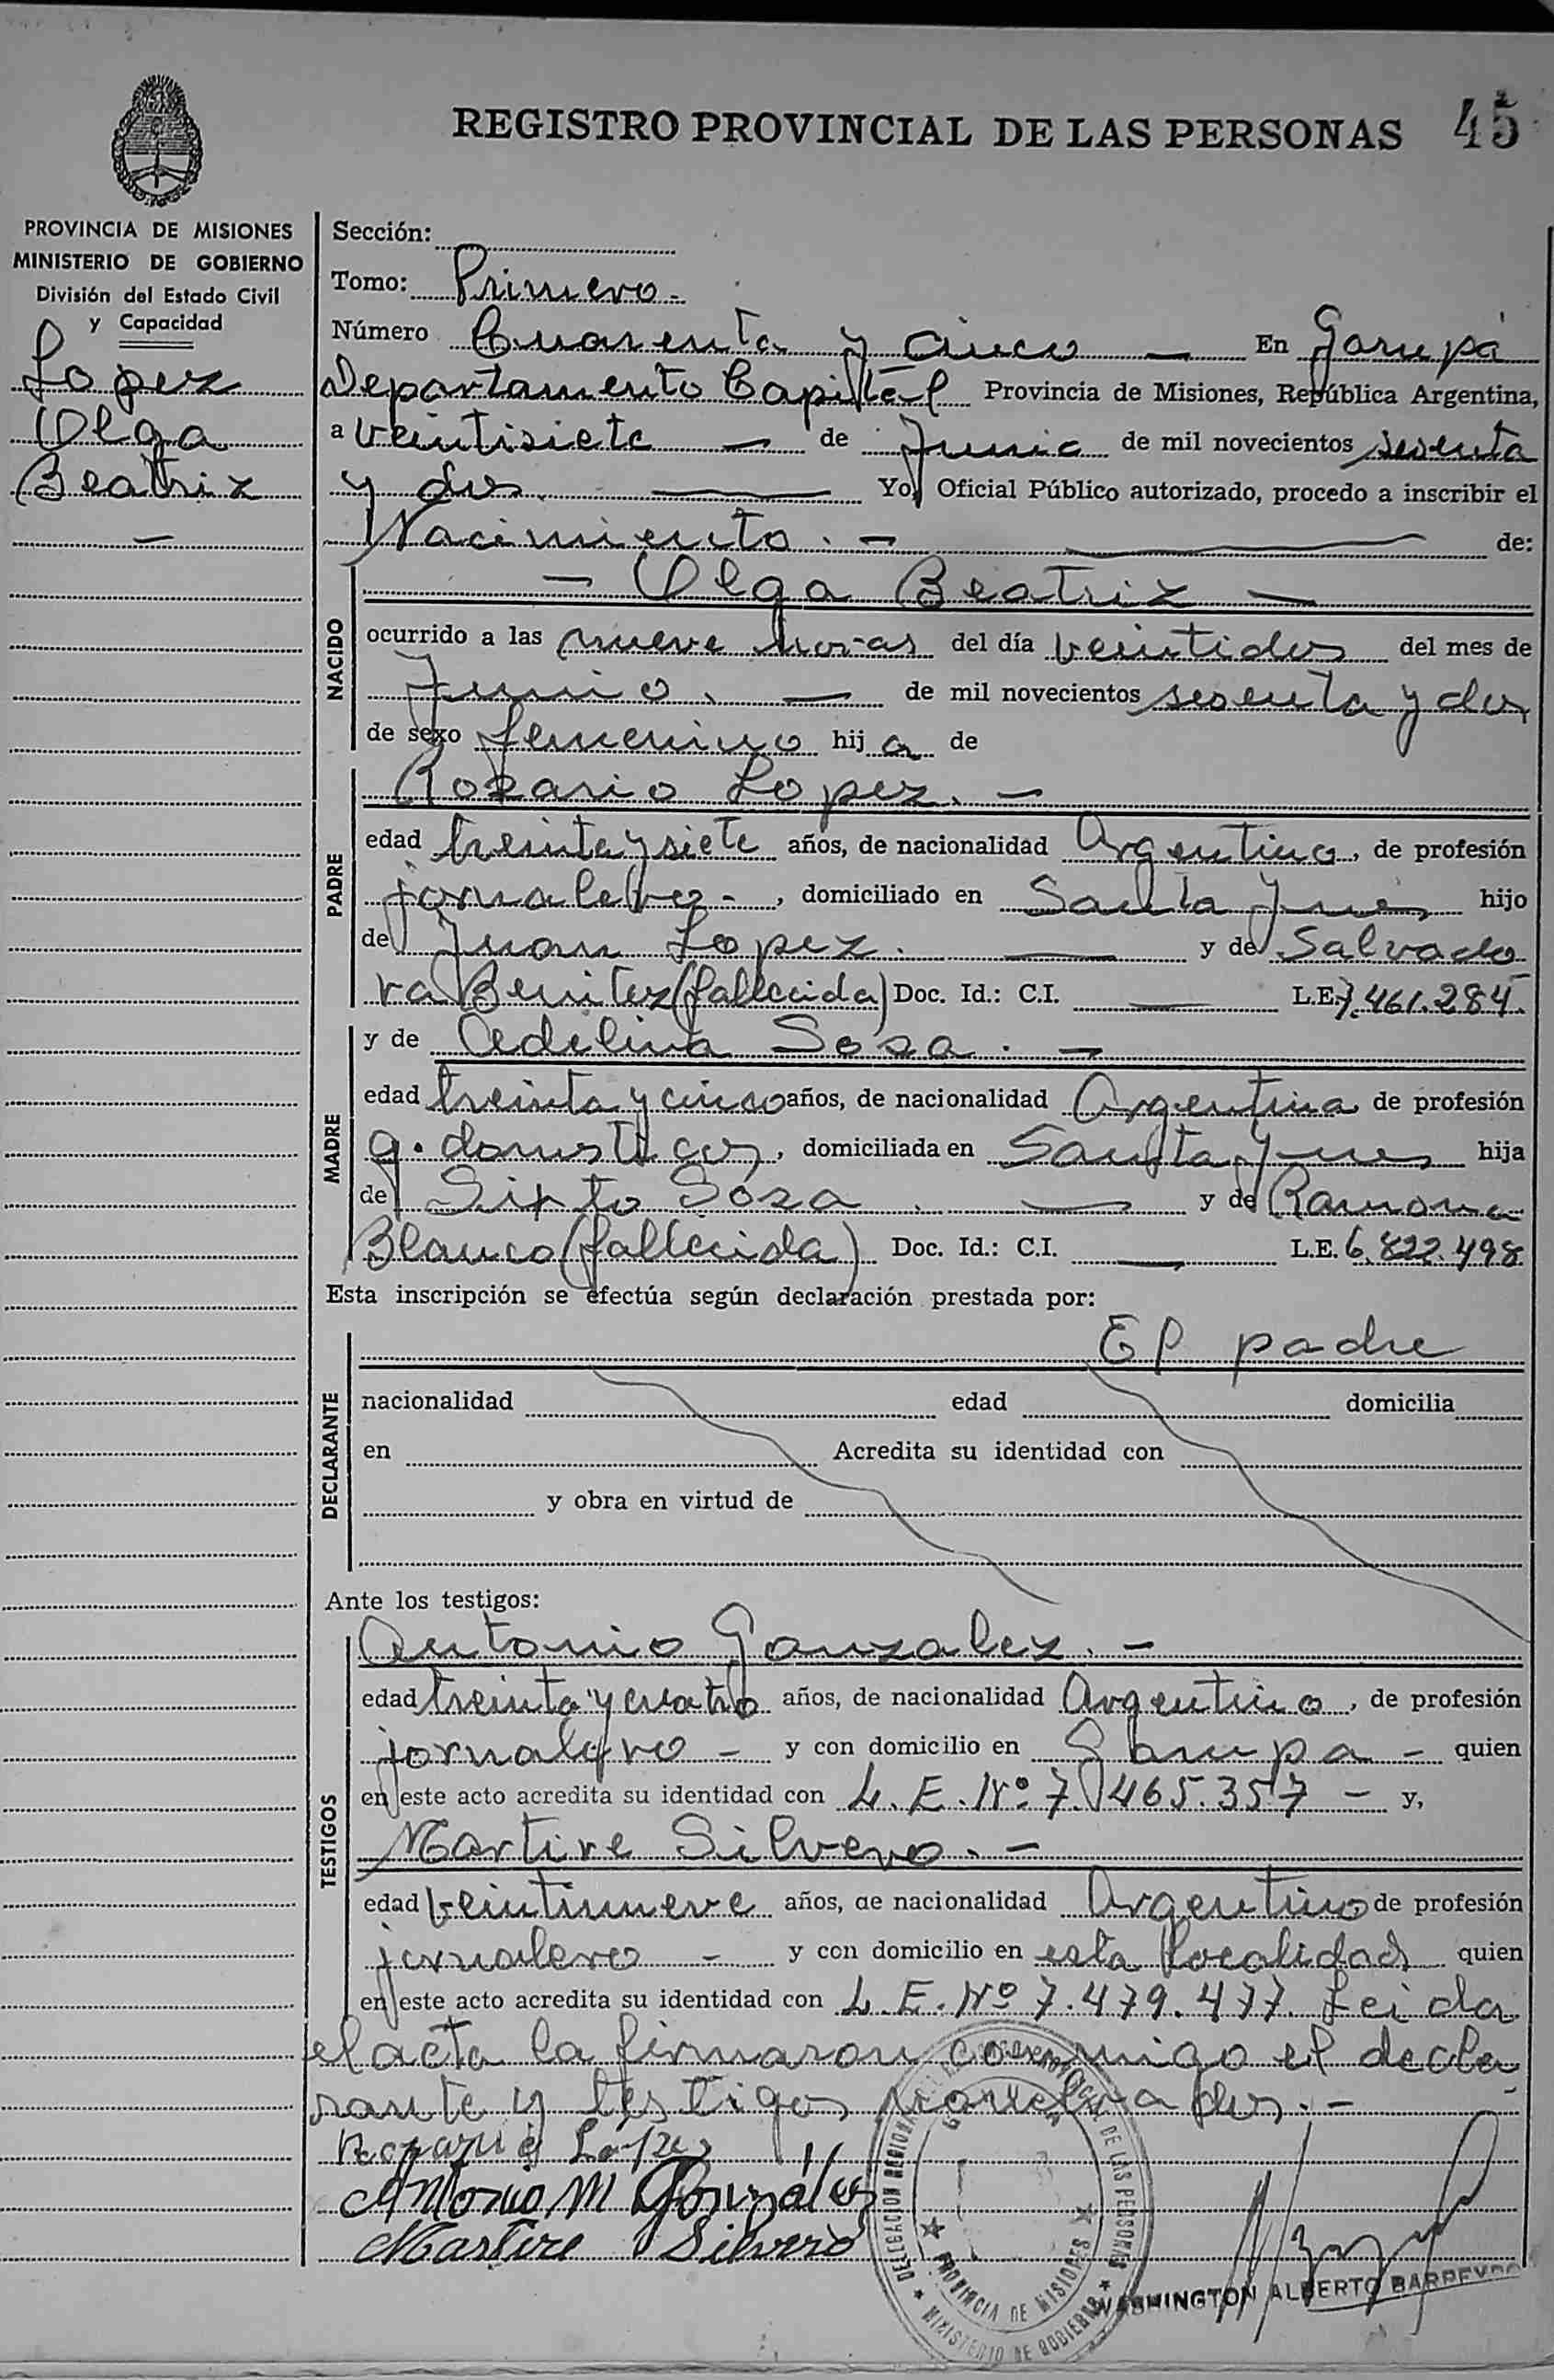 REGISTRO PROVINCIAL DE LAS PERSONAS 45
PROVINCIA DE MISIONES
MINISTERIO DE GOBIERNO
División del Estado Civil
y Capacidad
Lopez
Olga
Beatriz
Sección:
Tomo: Primero.-
Número Cuarenta y cinco — En Garupá
Departamento Capital Provincia de Misiones, República Argentina,
a veintisiete — de Junio de mil novecientos sesenta
y dos. — Yo, Oficial Público autorizado, procedo a inscribir el
Nacimiento.- — de:
NACIDO
— Olga Beatriz —
ocurrido a las nueve horas del día veintidos del mes de
Junio. — de mil novecientos sesenta y dos
de sexo femenino hija de
PADRE
Rozario Lopez.-
edad treinta y siete años, de nacionalidad Argentino, de profesión
jornalero-, domiciliado en Santa Ynes hijo
de Juan Lopez. — y de Salvado
ra Benitez (fallecida) Doc. Id.: C.I. — L.E. 7.461.284.
MADRE
y de Adelina Sosa.-
edad treinta y cinco años, de nacionalidad Argentina, de profesión
q. domesticos, domiciliada en Santa Ynes hija
de Sixto Sosa. — y de Ramona
Blanco (fallecida) Doc. Id.: C.I. — L.E. 6.822.498
Esta inscripción se efectúa según declaración prestada por:
DECLARANTE
El padre
nacionalidad edad domicilia
en Acredita su identidad con
y obra en virtud de
Ante los testigos:
TESTIGOS
Antonio Gonzalez.-
edad treinta y cuatro años, de nacionalidad Argentino, de profesión
jornalero - y con domicilio en Garupa - quien
en este acto acredita su identidad con L.E. Nº 7.465.357 - y,
Martire Silvero.-
edad veintinueve años, de nacionalidad Argentino de profesión
jornalero - y con domicilio en esta localidad quien
en este acto acredita su identidad con L.E. Nº 7.479.477. Leida
el acta la firmaron conmigo el decla
rante y testigos nombrados.-
Rozario López
Antonio M González
Martire Silvero
DELEGACION REGIONAL DE LAS PERSONAS
PROVINCIA DE MISIONES
MINISTERIO DE GOBIERNO
WASHINGTON ALBERTO BARREYRO